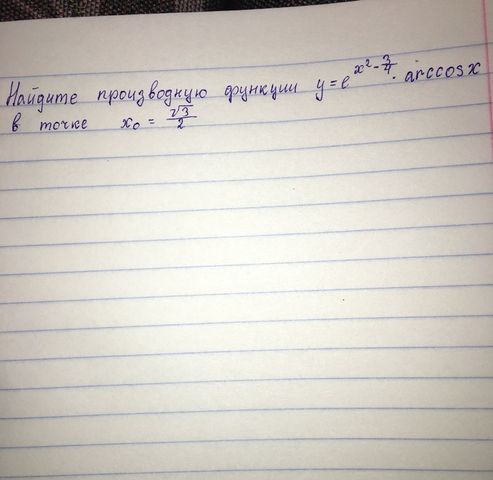 Найдите производную функции y = e^{x² - 3/4} · arccos x
в точке x₀ = √3/2